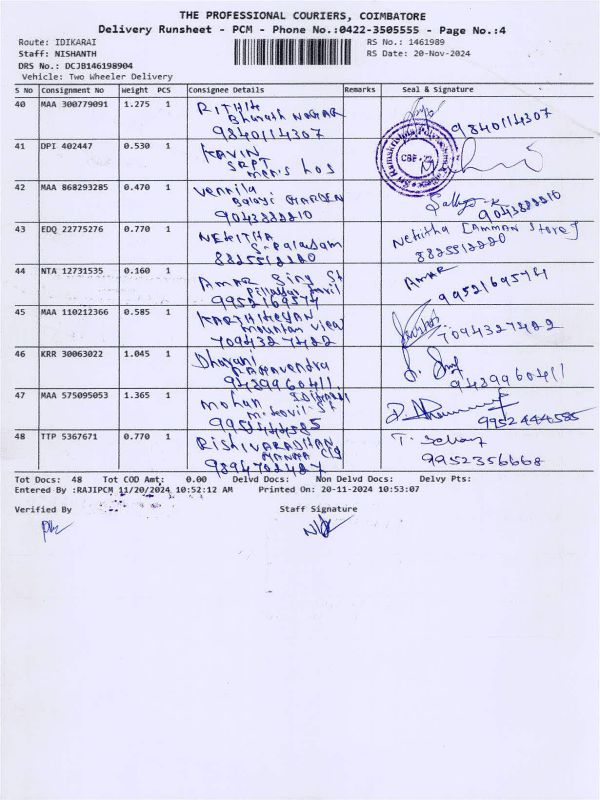 THE PROFESSIONAL COURIERS, COIMBATORE
Delivery Runsheet - PCM - Phone No.:0422-3505555 - Page No.:4
Route: IDIKARAI RS No.: 1461989
Staff: NISHANTH RS Date: 20-Nov-2024
DRS No.: DCJB146198904
Vehicle: Two Wheeler Delivery
S No Consignment No Weight PCS Consignee Details Remarks Seal & Signature
40 MAA 300779091 1.275 1 RITHIK
Bharath NAGAR
9840114307 9840114307
41 DPI 402447 0.530 1 KAVIN
SRPT
men's hos
CBE
42 MAA 868293285 0.470 1 Vennila
Balaji GARDEN
9043888210 9043888210
43 EDQ 22775276 0.770 1 NEKITHA Nekitha [Amman Store]
S-Palayam
8825518220 8825518220
44 NTA 12731535 0.160 1 AMAR Sing St AMAR
Pillayar kovil
9952169574 9952169574
45 MAA 110212366 0.585 1 KARTHIKEYAN
mountan view
7094327482 7094327482
46 KRR 30063022 1.045 1 Dharani
RAHAVENDRA
9489960411 9489960411
47 MAA 575095053 1.365 1 mohan IDIKARAI
m.kovil St
9952444585 9952444585
48 TTP 5367671 0.770 1 RISHIVARADHAN T.
9894702487 9952356668
Tot Docs: 48 Tot COD Amt: 0.00 Delvd Docs: Non Delvd Docs: Delvy Pts:
Entered By :RAJIPCM 11/20/2024 10:52:12 AM Printed On: 20-11-2024 10:53:07
Verified By Staff Signature